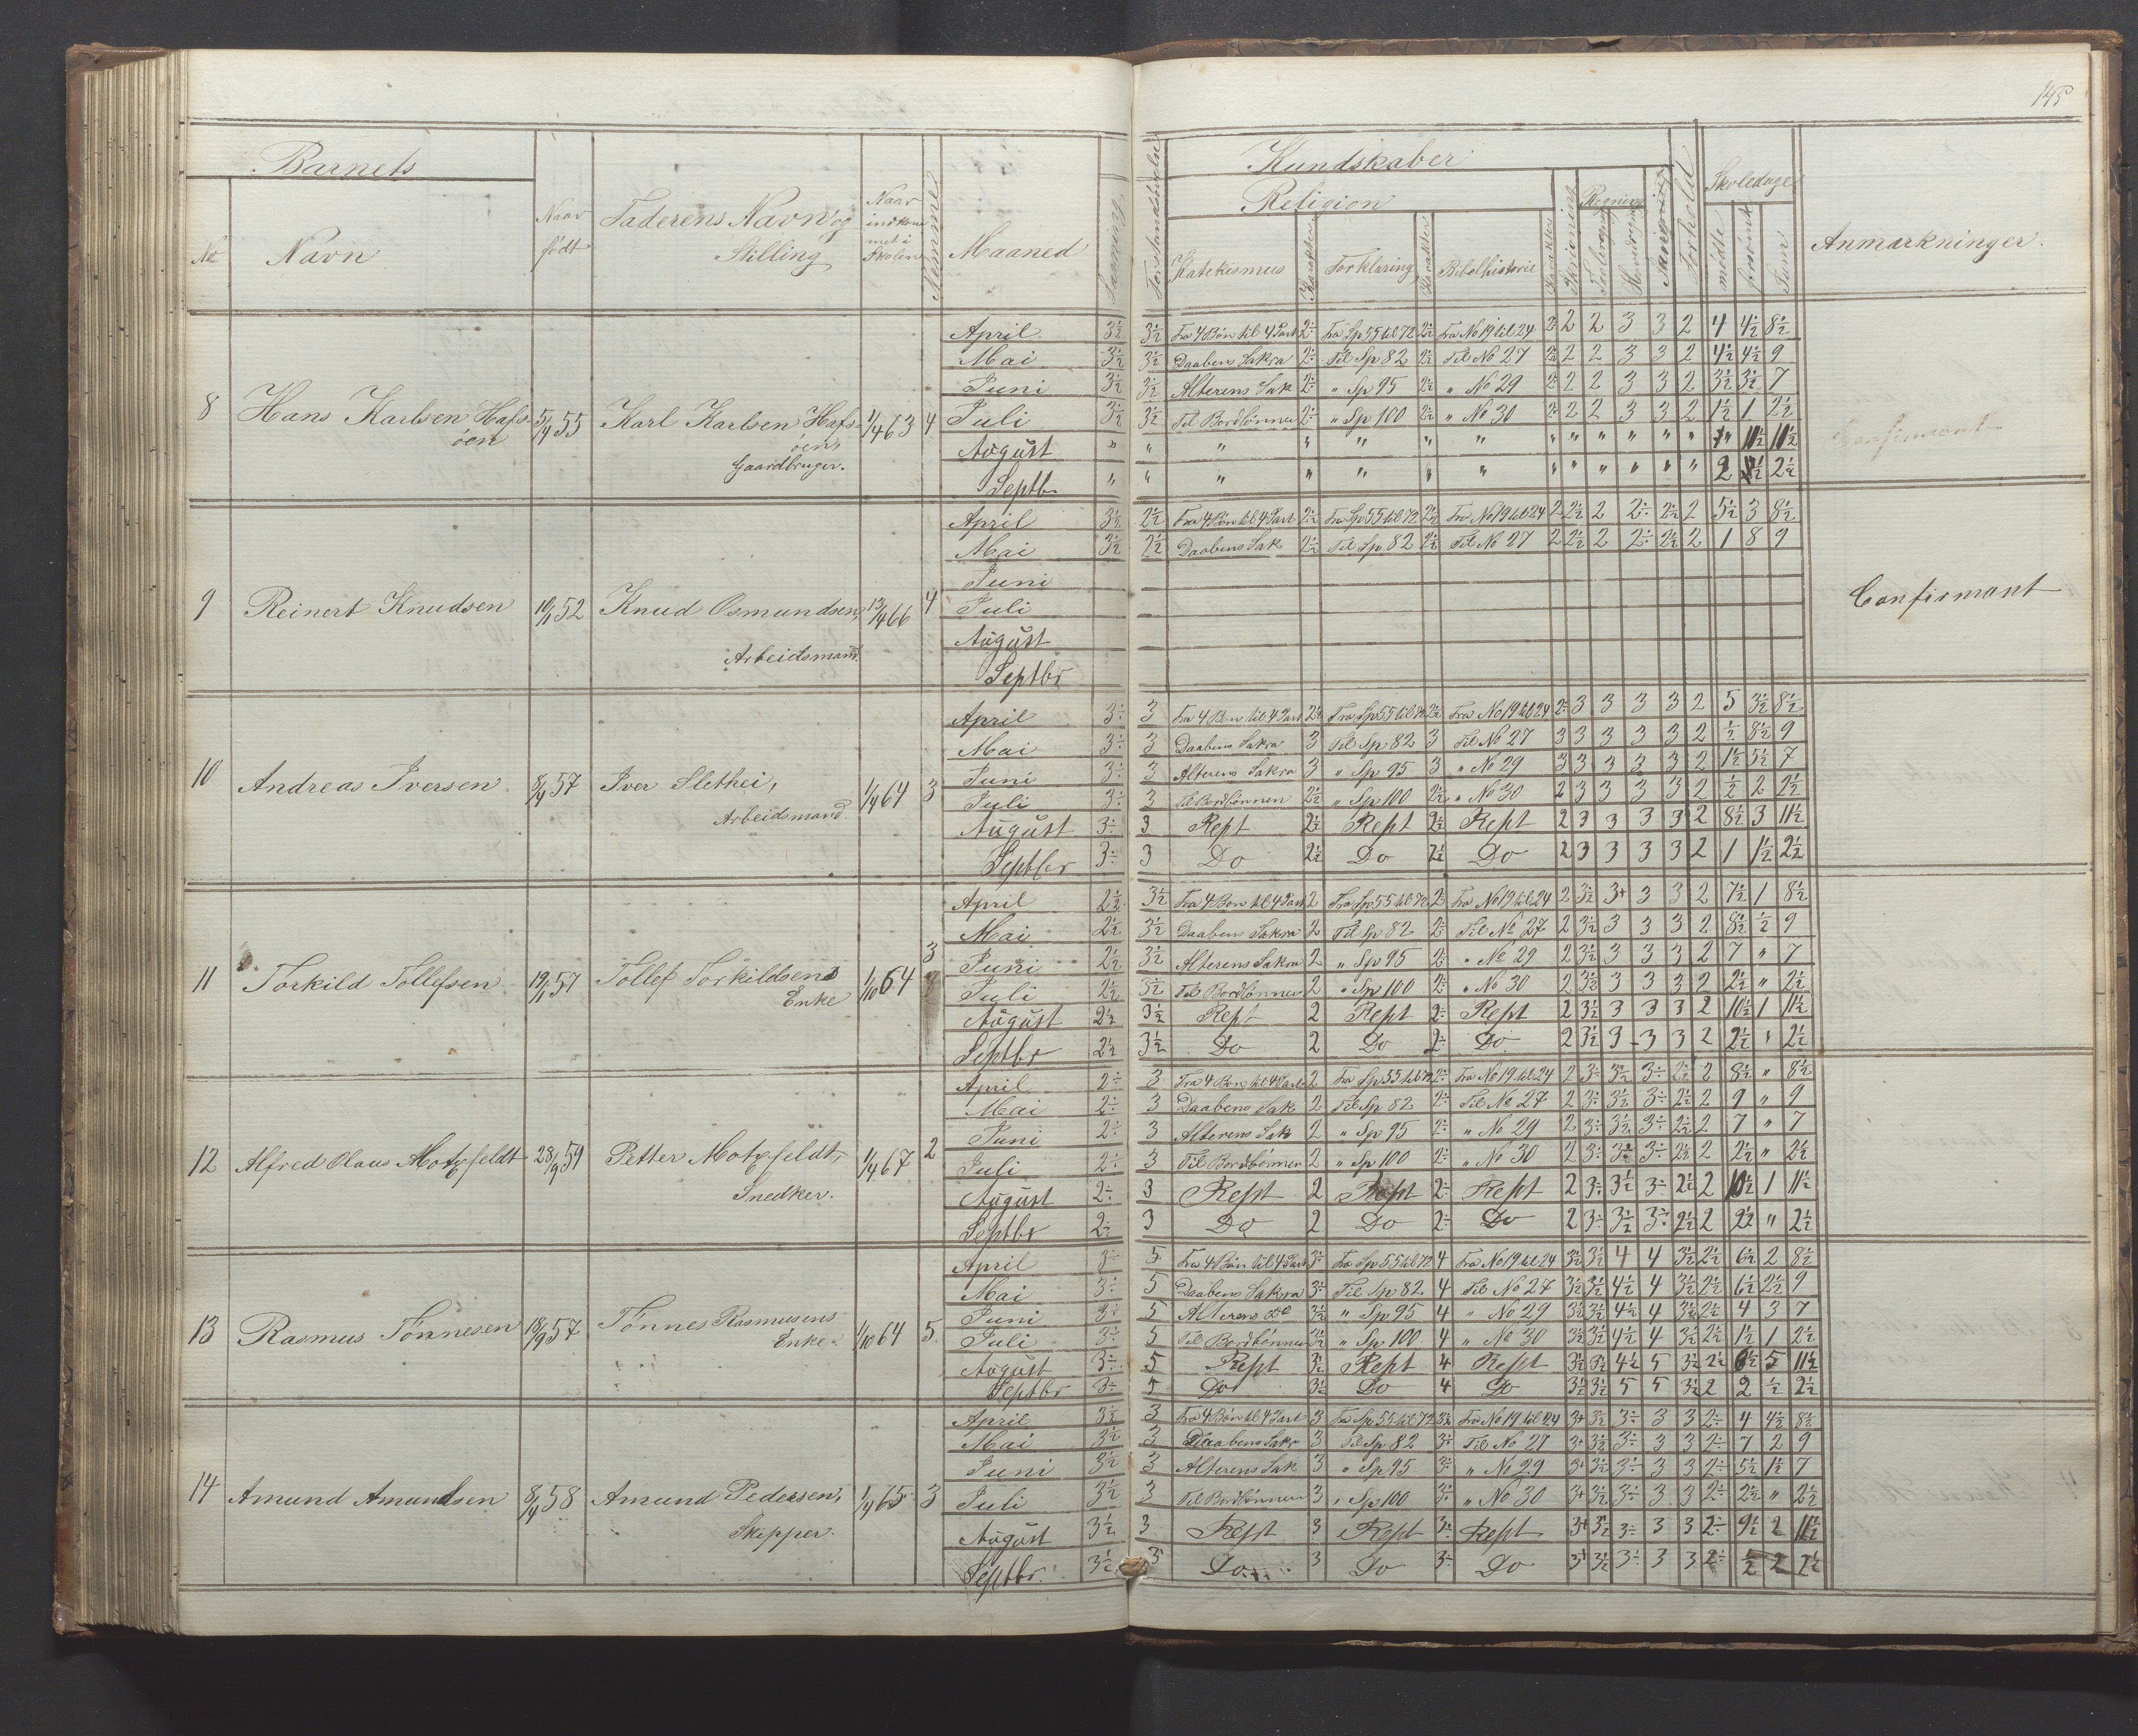 145
Barnets
No
Navn
Naar født
Faderens Navn og Stilling
Naar indkommet i Skolen
Nemme
Maaned
Læsning
Forstandsøvelse
Kundskaber
Religion
Katekismus
Karakter
Forklaring
Karakter
Bibelhistorie
Karakter
Skrivning
Regning
Tavleregning
Hovedregning
Sangøvelse
Forhold
Skoledage
mødte
forsømte
Sum
Anmærkninger.
8 Hans Karlsen Hafsøen 5/9 55 Karl Karlsen Hafsøen, Gaardbruger. 1/4 63 4
April 3½ 3½ Fra 4 Bøn til 4 Part 2÷ Fra Sp 55 til 72 2½ Fra No 19 til 24 2÷ 2 2 3 3 2 4 4½ 8½
Mai 3½ 3½ Daabens Sakra 2÷ Til Sp 82 2½ Til No 27 2½ 2 2 3 3 2 4½ 4½ 9
Juni 3½ 3½ Alterens Sak 2÷ " Sp 95 2½ " No 29 2÷ 2 2 3 3 2 3½ 3½ 7
Juli 3½ 3½ Til Bordbønnen 2÷ " Sp 100 2½ " No 30 2÷ 2 2 3 3 2 1½ 1 2½
August " " " " " " " " " " " " " " 11½ 11½
Septb. " " " " " " " " " " " " " 2 ½ 2½
Confirmant
9 Reinert Knudsen 10/1 52 Knud Osmundsen, Arbeidsmand. 13/4 66 4
April 3½ 2½ Fra 4 Bøn til 4 Part 2½ Fra Sp 55 til 72 2½ Fra No 19 til 24 2 2½ 2 2÷ 2½ 2 5½ 3 8½
Mai 3½ 2½ Daabens Sak 2½ Til Sp 82 2½ Til No 27 2 2½ 2 2÷ 2½ 2 1 8 9
Juni
Juli
August
Septbr
Confirmant
10 Andreas Iversen 8/4 57 Iver Slethei, Arbeidsmand. 1/4 64 3
April 3÷ 3 Fra 4 Bøn til 4 Part 2½ Fra Sp 55 til 72 2½ Fra No 19 til 24 2÷ 3 3 3 3 2 5 3½ 8½
Mai 3÷ 3 Daabens Sakra 3 Til Sp 82 3 Til No 27 3 3 3 3 3 2 ½ 8½ 9
Juni 3÷ 3 Alterens Sakra 3 " Sp 95 3 " No 29 3 3 3 3 3 2 1½ 5½ 7
Juli 3÷ 3 Til Bordbønnen 2½ " Sp 100 2½ " No 30 2 3 3 3 3 2 ½ 2 2½
August 3÷ 3 Rept 2½ Rept 2½ Rept 2 3 3 3 3 2 8½ 3 11½
Septbr 3÷ 3 Do 2½ Do 2½ Do 2 3 3 3 3 2 1 1½ 2½
11 Torkild Tollefsen 19/1 57 Tollef Torkildsens Enke 1/10 64 3
April 2½ 3½ Fra 4 Bøn til 4 Part 2 Fra Sp 55 til 72 2÷ Fra No 19 til 24 2 3½ 3+ 3 3 2 7½ 1 8½
Mai 2½ 3½ Daabens Sakra 2 Til Sp 82 2÷ Til No 27 2 3½ 3 3 3 2 8½ ½ 9
Juni 2½ 3½ Alterens Sakra 2 " Sp 95 2÷ " No 29 2 3½ 3 3 3 2 7 " 7
Juli 2½ 3½ Til Bordbønnen 2 " Sp 100 2÷ " No 30 2 3½ 3 3 3 2 2½ " 2½
August 2½ 3½ Rept 2 Rept 2÷ Rept 2 3½ 3 3 3 2 10½ 1 11½
Septbr 2½ 3½ Do 2 Do 2÷ Do 2 3½ 3 3 3 2 2½ " 2½
12 Alfred Olaus Motzfeldt 28/9 59 Petter Motzfeldt, Snedker. 1/4 67 2
April 2÷ 3 Fra 4 Bøn til 4 Part 2 Fra Sp 55 til 72 2÷ Fra No 19 til 24 2 3÷ 3½ 3÷ 2½ 2 8½ " 8½
Mai 2÷ 3 Daabens Sak 2 Til Sp 82 2÷ Til No 27 2 3÷ 3½ 3÷ 2½ 2 9 " 9
Juni 2÷ 3 Alterens Sak 2 " Sp 95 2÷ " No 29 2 3÷ 3½ 3÷ 2½ 2 7 " 7
Juli 2÷ 3 Til Bordbønnen 2 " Sp 100 2÷ " No 30 2 3÷ 3½ 3÷ 2½ 2 2½ " 2½
August 2÷ 3 Rept 2 Rept 2÷ Rept 2 3÷ 3½ 3÷ 2½ 2 10½ 1 11½
Septbr 2÷ 3 Do 2 Do 2÷ Do 2 3÷ 3½ 3÷ 2½ 2 2½ " 2½
13 Rasmus Tønnesen 18/9 57 Tønnes Rasmusens Enke. 1/10 64 5.
April 3÷ 5 Fra 4 Bøn til 4 Part 3÷ Fra Sp 55 til 72 4 Fra No 19 til 24 3½ 3½ 4 4 3½ 2½ 6½ 2 8½
Mai 3÷ 5 Daabens Sakra 3÷ Til Sp 82 4 Til No 27 3½ 3½ 4½ 4 3½ 2½ 6½ 2½ 9
Juni 3÷ 5 Alterens Do 3½ " Sp 95 4 " No 29 3½ 3½ 4½ 4 3½ 2½ 4 3 7
Juli 3÷ 5 Til Bordbønnen 3½ " Sp 100 4 " No 30 3½ 3½ 4½ 4 3½ 2½ 1½ 1 2½
August 3÷ 5 Rept 3½ Rept 4 Rept 3½ 3½ 4½ 5 3½ 2½ 6½ 5 11½
Septbr 3÷ 5 Do 3½ Do 4 Do 3½ 3½ 5 5 3½ 2 2 ½ 2½
14 Amund Amundsen 8/4 58 Amund Pedersen, Skipper. 1/4 65 3
April 3½ 3 Fra 4 Bøn til 4 Part 3 Fra Sp 55 til 72 3½ Fra No 19 til 24 3+ 3½ 3÷ 3 3 2÷ 4 4½ 8½
Mai 3½ 3 Daabens Sakr 3 Til Sp 82 3÷ Til No 27 3+ 3½ 3÷ 3 3 2÷ 7 2 9
Juni 3½ 3 Alterens Sak 3 " Sp 95 3÷ " No 29 3+ 3½ 3÷ 3 3 2÷ 5½ 1½ 7
Juli 3½ 3 Til Bordbønnen 3 " Sp 100 3÷ " No 30 3+ 3½ 3÷ 3 3 2÷ 2½ " 2½
August 3½ 3 Rept 3 Rept 3÷ Rept 3+ 3½ 3÷ 3 3 2÷ 9½ 2 11½
Septbr. 3½ 3 Do 3 Do 3÷ Do 3+ 3½ 3÷ 3 3 2÷ ½ 2 2½